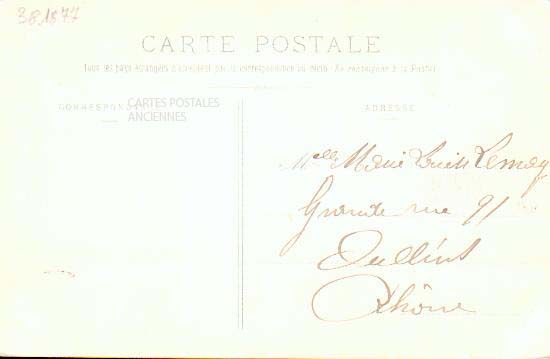 38.1877
CARTE POSTALE
Tous les pays étrangers n'acceptent pas la correspondance au recto. Se renseigner à la Poste
CORRESPONDANCE
CARTES POSTALES
ANCIENNES
ADRESSE
Mlle Marie Lemay
Grande rue 91
Oullins
Rhône